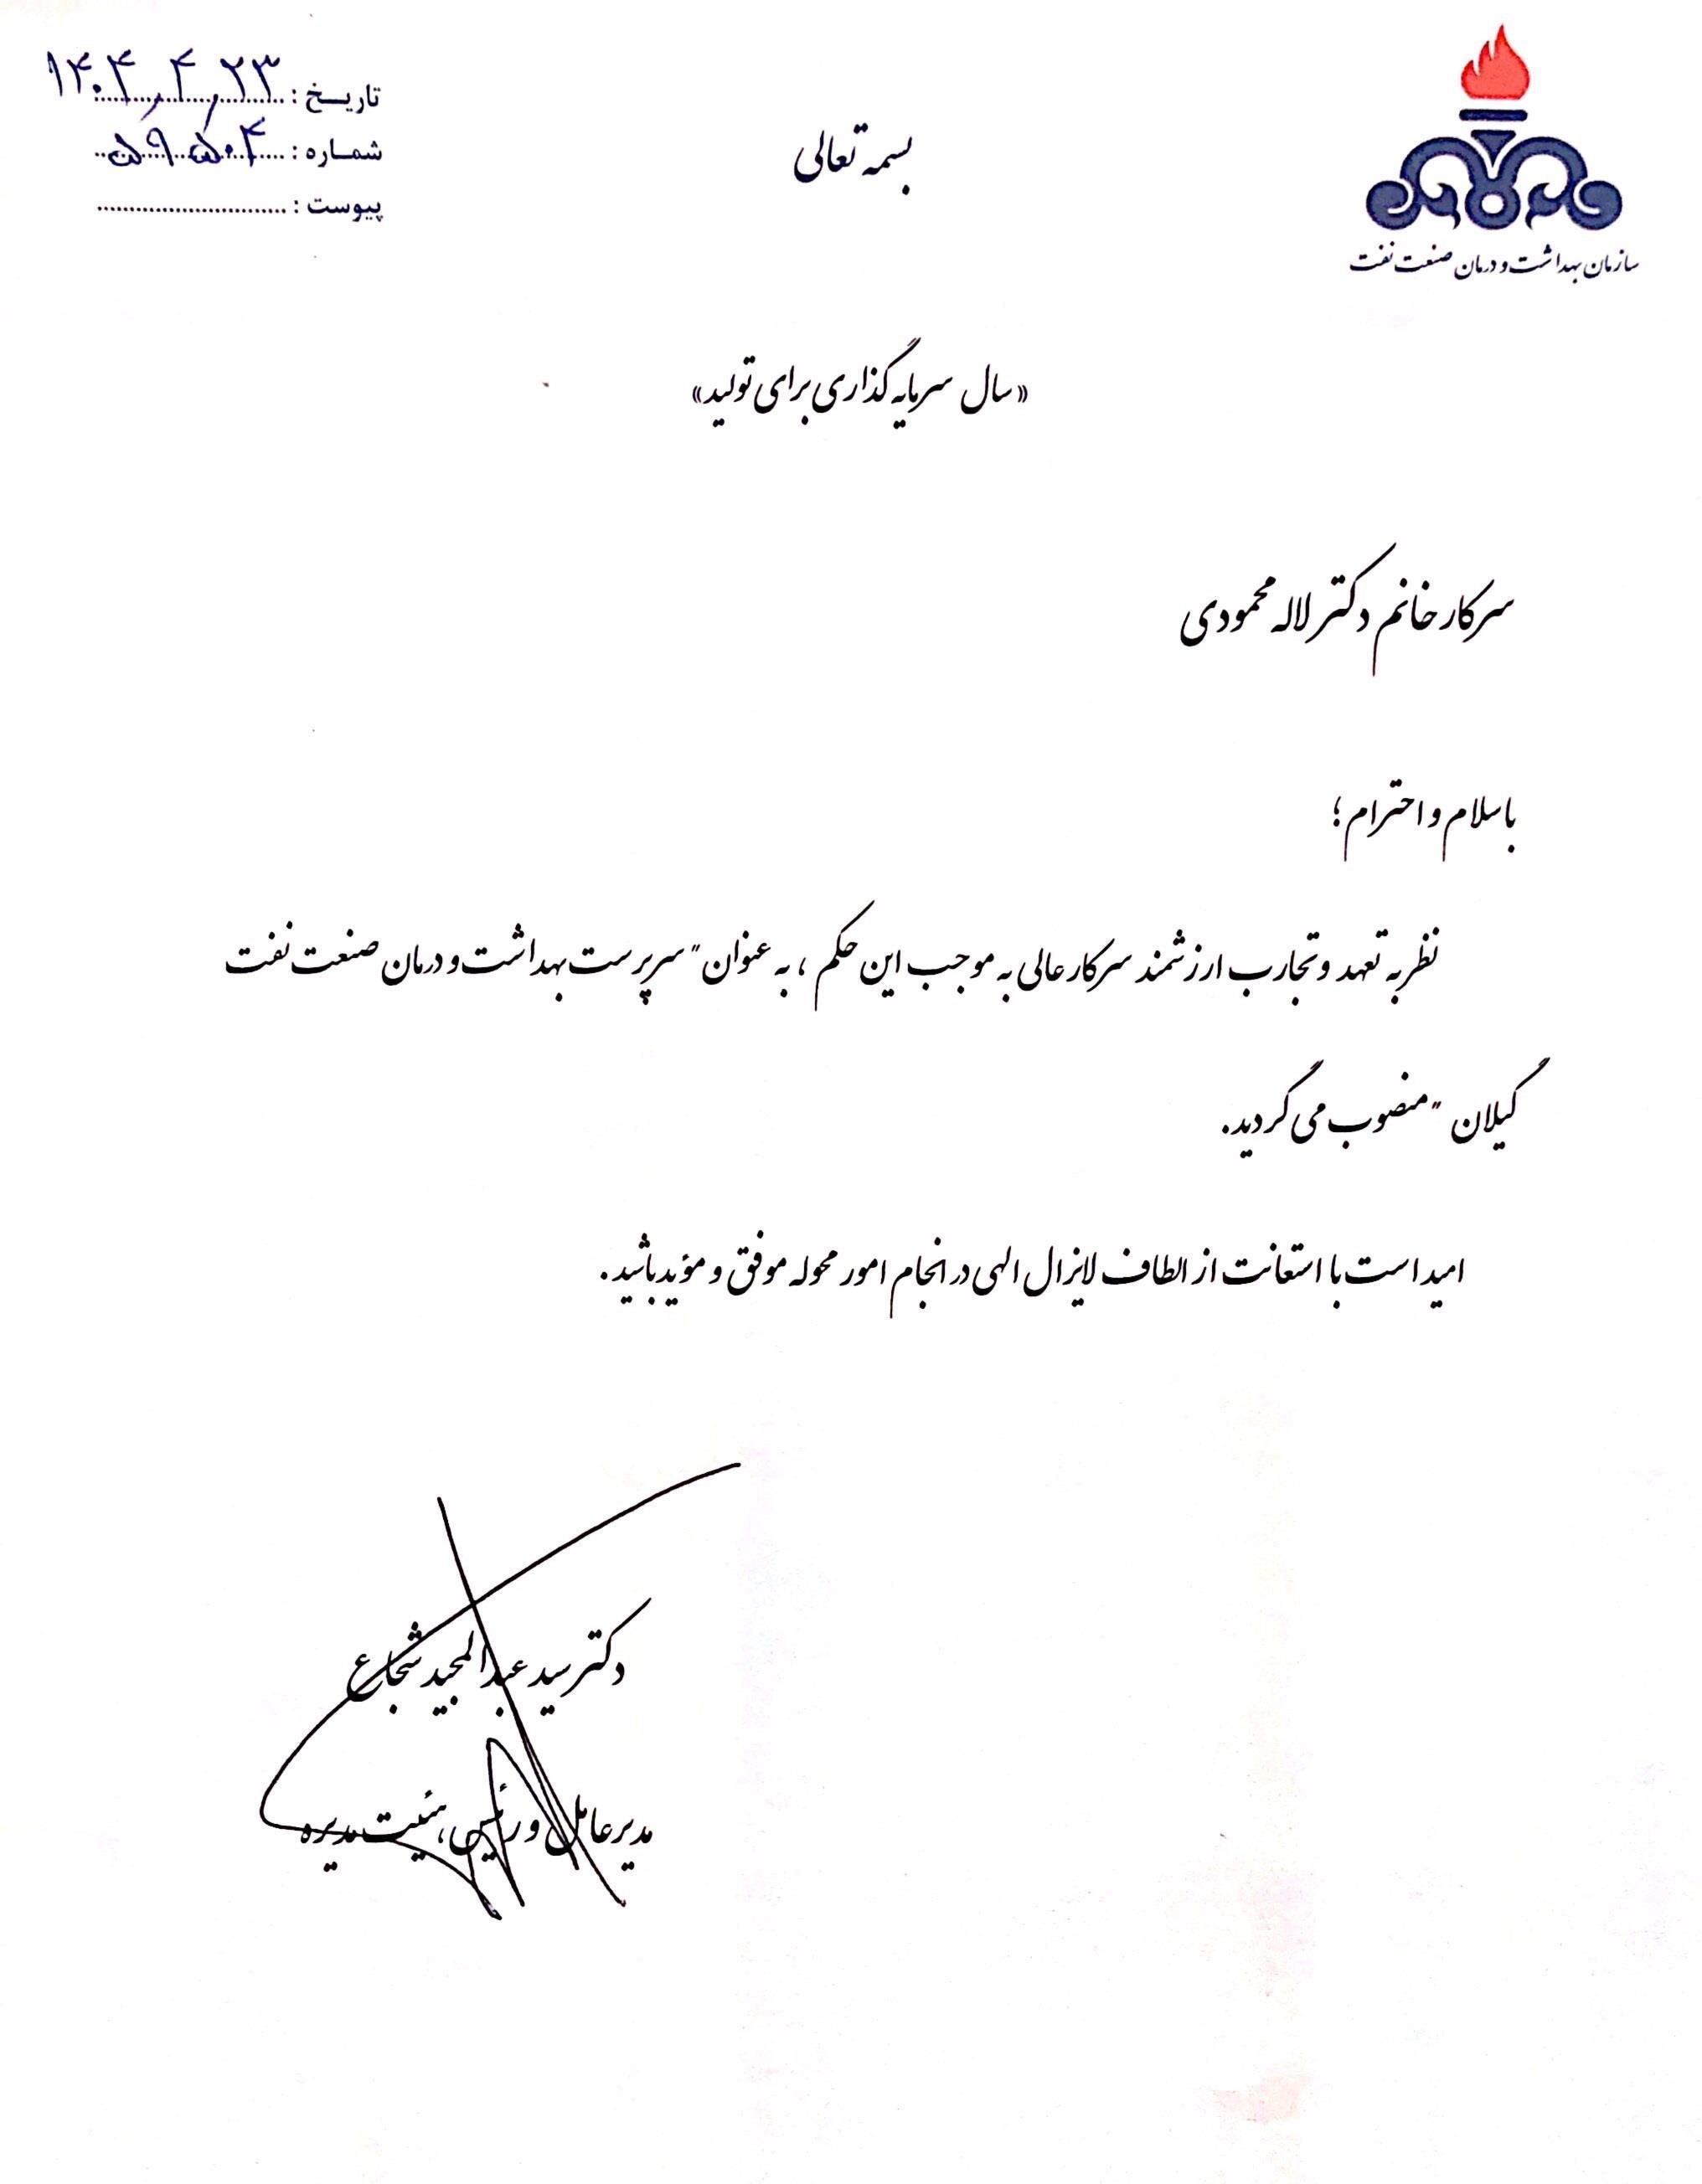 سازمان بهداشت و درمان صنعت نفت
بسمه تعالی
تاریخ : ۱۴۰۴,۴,۲۳
شماره : ۵۹۵۰۴
پیوست :
«سال سرمایه گذاری برای تولید»
سرکار خانم دکتر لاله محمودی
با سلام و احترام ؛
نظر به تعهد و تجارب ارزشمند سرکار عالی به موجب این حکم ، به عنوان " سرپرست بهداشت و درمان صنعت نفت
گیلان " منصوب می گردید.
امید است با استعانت از الطاف لایزال الهی در انجام امور محوله موفق و مؤید باشید.
دکتر سید عبدالمجید شجاع
مدیر عامل و رئیس هئیت مدیره